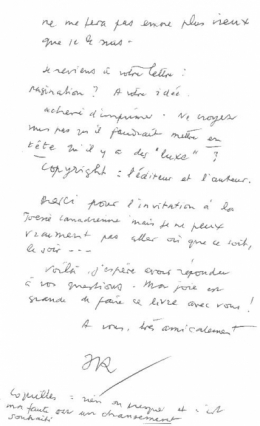 ne me fera pas encore plus vieux
que je le suis -
Je reviens à votre lettre :
Pagination ? A votre idée.
Achevé d'imprimer. Ne croyez
vous pas qu'il faudrait mettre en
tête qu'il y a des "luxe" ?
Copyright : l'éditeur et l'auteur.
Merci pour l'invitation à la
canadienne mais je ne peux
vraiment pas aller où que ce soit,
le soir ---
Voilà, j'espère avoir répondu
à vos questions. Mon joie est
grande de faire ce livre avec vous !
A vous, très amicalement
JR
Coquilles : rien ou presque et c'est
ma faute ou un changement
souhaité